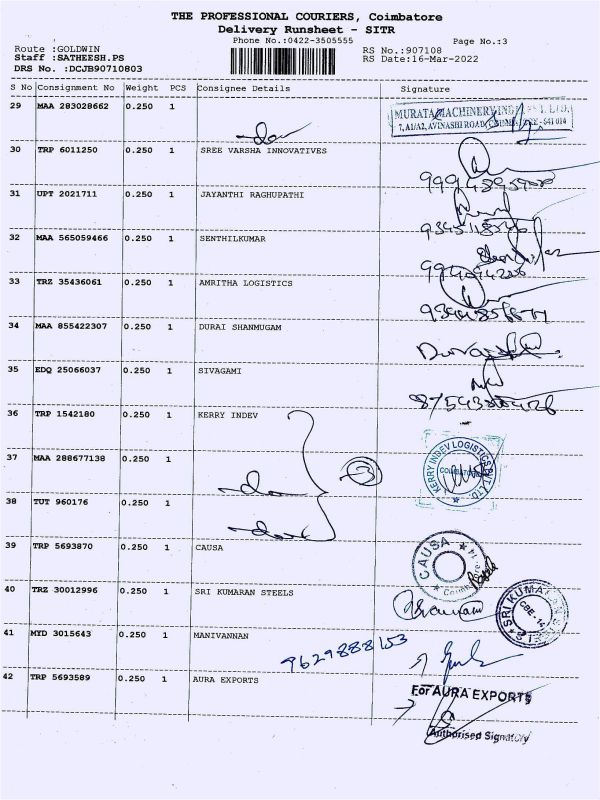 THE PROFESSIONAL COURIERS, Coimbatore
Delivery Runsheet - SITR
Phone No.:0422-3505555
Page No.:3
Route :GOLDWIN
RS No.:907108
Staff :SATHEESH.PS
RS Date:16-Mar-2022
DRS No. :DCJB90710803
S No Consignment No Weight PCS Consignee Details Signature
29 MAA 283028662 0.250 1
MURATA MACHINERY
7, A1/A2, AVINASHI ROAD, - 641 014
30 TRP 6011250 0.250 1 SREE VARSHA INNOVATIVES
31 UPT 2021711 0.250 1 JAYANTHI RAGHUPATHI
32 MAA 565059466 0.250 1 SENTHILKUMAR
33 TRZ 35436061 0.250 1 AMRITHA LOGISTICS
34 MAA 855422307 0.250 1 DURAI SHANMUGAM
35 EDQ 25066037 0.250 1 SIVAGAMI
36 TRP 1542180 0.250 1 KERRY INDEV
37 MAA 288677138 0.250 1
3
KERRY INDEV LOGISTICS PVT. LTD.
38 TUT 960176 0.250 1
39 TRP 5693870 0.250 1 CAUSA
CAUSA
40 TRZ 30012996 0.250 1 SRI KUMARAN STEELS
SRI KUMARAN
CBE. 14
41 MYD 3015643 0.250 1 MANIVANNAN
9629888153
42 TRP 5693589 0.250 1 AURA EXPORTS
For AURA EXPORTS
Authorised Signatory